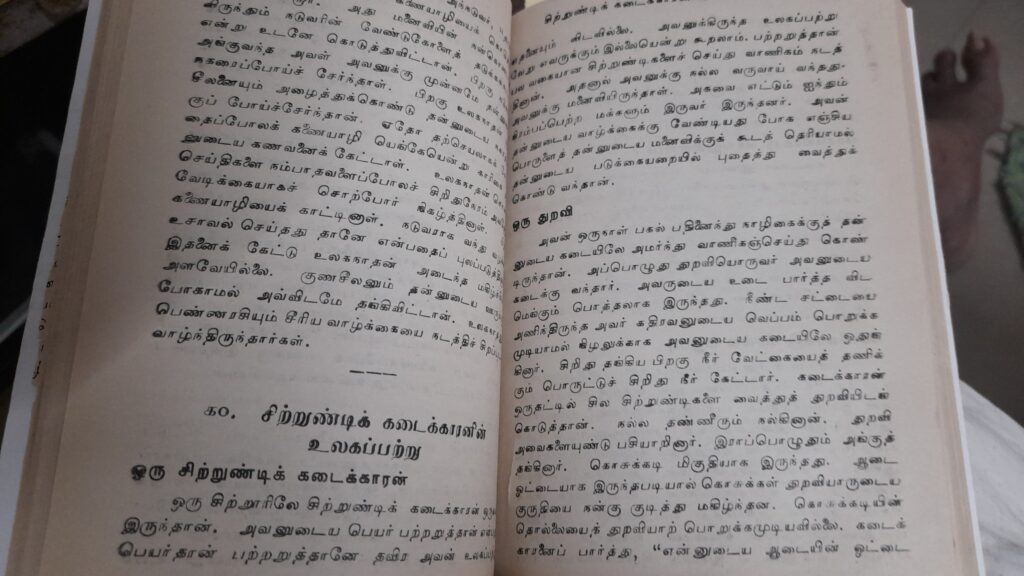 கணையாழியைப்
விருந்தும் நடுவரின் வேண்டுகோளைத்
என்று உடனே கொடுத்துவிட்டான்.
அங்குவந்த அவள் அவனுக்கு முன்னமே
நகரைப்போய்ச் சேர்ந்தாள். பிறகு
சீலனையும் அழைத்துக்கொண்டு தன்னுடைய
குப் போய்ச்சேர்ந்தான். ஏதோ தற்செயலாகக்
தைப்போலக் கணையாழி யெங்கேயென்று
னுடைய கணவனைக் கேட்டாள். உலகநாதன்
செய்திகளை நம்பாதவளைப்போலச் சிறிதுநேரம்
வேடிக்கையாகச் சொற்போர் நிகழ்த்தினாள்.
கணையாழியைக் காட்டினாள். நடுவராக வந்து
உசாவல் செய்தது தானே என்பதைப்
இதனைக் கேட்டு உலகநாதன் அடைந்த
அளவேயில்லை. குணசீலனும் தன்னுடைய
போகாமல் அவ்விடமே தங்கிவிட்டான்.
பெண்ணரசியும் சீரிய வாழ்க்கையை நடத்திச்
வாழ்ந்திருந்தார்கள்.
௧௦. சிற்றுண்டிக் கடைக்காரனின்
உலகப்பற்று
ஒரு சிற்றுண்டிக் கடைக்காரன்
ஒரு சிற்றூரிலே சிற்றுண்டிக் கடைக்காரன்
இருந்தான். அவனுடைய பெயர் பற்றறுத்தான்
பெயர்தான் பற்றறுத்தானே தவிர அவன்
சிற்றுண்டிக் கடைக்காரனின்
தனையும் விடவில்லை. அவனுக்கிருந்த உலகப்பற்று
வேறு எவருக்கும் இல்லையென்று கூறலாம். பற்றறுத்தான்
பல வகையான சிற்றுண்டிகளைச் செய்து வாணிகம் நடத்
தினான். அதனால் அவனுக்கு நல்ல வருவாய் வந்தது.
அவனுக்கு மனைவியிருந்தாள். அகவை எட்டும் ஐந்தும்
நிரம்பப்பெற்ற மக்களும் இருவர் இருந்தனர். அவன்
தன்னுடைய வாழ்க்கைக்கு வேண்டியது போக எஞ்சிய
பொருளைத் தன்னுடைய மனைவிக்குக் கூடத் தெரியாமல்
தன்னுடைய படுக்கையறையில் புதைத்து வைத்துக்
கொண்டு வந்தான்.
ஒரு துறவி
அவன் ஒருநாள் பகல் பதினைந்து நாழிகைக்குத் தன்
னுடைய கடையிலே அமர்ந்து வாணிகஞ்செய்து கொண்
டிருந்தான். அப்பொழுது துறவியொருவர் அவனுடைய
கடைக்கு வந்தார். அவருடைய உடை பார்த்த விட
மெங்கும் பொத்தலாக இருந்தது. நீண்ட சட்டையை
அணிந்திருந்த அவர் கதிரவனுடைய வெப்பம் பொறுக்க
முடியாமல் நிழலுக்காக அவனுடைய கடையில் ஒதுங்
கினார். சிறிது தங்கிய பிறகு நீர் வேட்கையைத் தணிக்
கும் பொருட்டுச் சிறிது நீர் கேட்டார். கடைக்காரன்
ஒருதட்டில் சில சிற்றுண்டிகளை வைத்துத் துறவியிடங்
கொடுத்தான். நல்ல தண்ணீரும் நல்கினான். துறவி
அவைகளையுண்டு பசியாறினார். இராப்பொழுதும் அங்குத்
தங்கினார். கொசுக்கடி மிகுதியாக இருந்தது. ஆடை
ஓட்டையாக இருந்தபடியால் கொசுக்கள் துறவியாருடைய
குருதியை நன்கு குடித்து மகிழ்ந்தன. கொசுக்கடியின்
தொல்லையைத் துறவியாற் பொறுக்கமுடியவில்லை. கடைக்
காரனைப் பார்த்து, "என்னுடைய ஆடையின் ஓட்டை